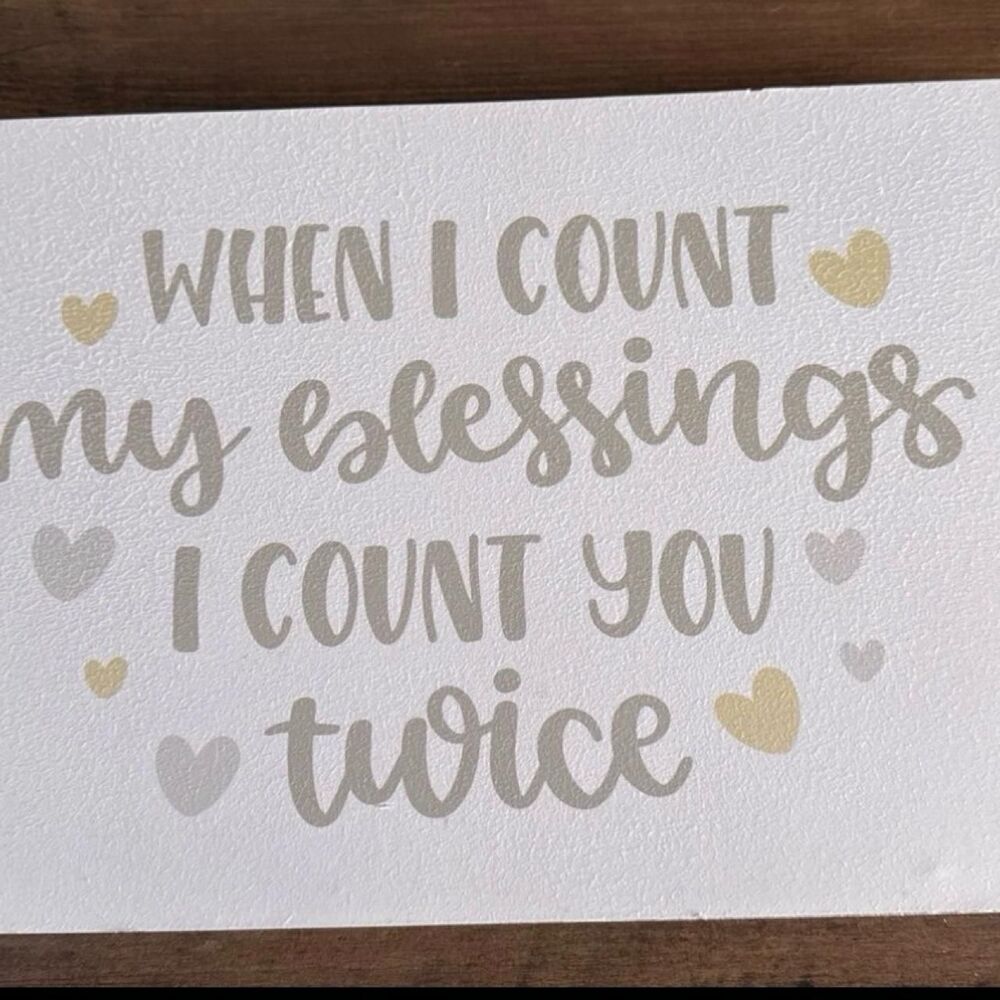 WHEN I COUNT
my blessings
I COUNT YOU
twice